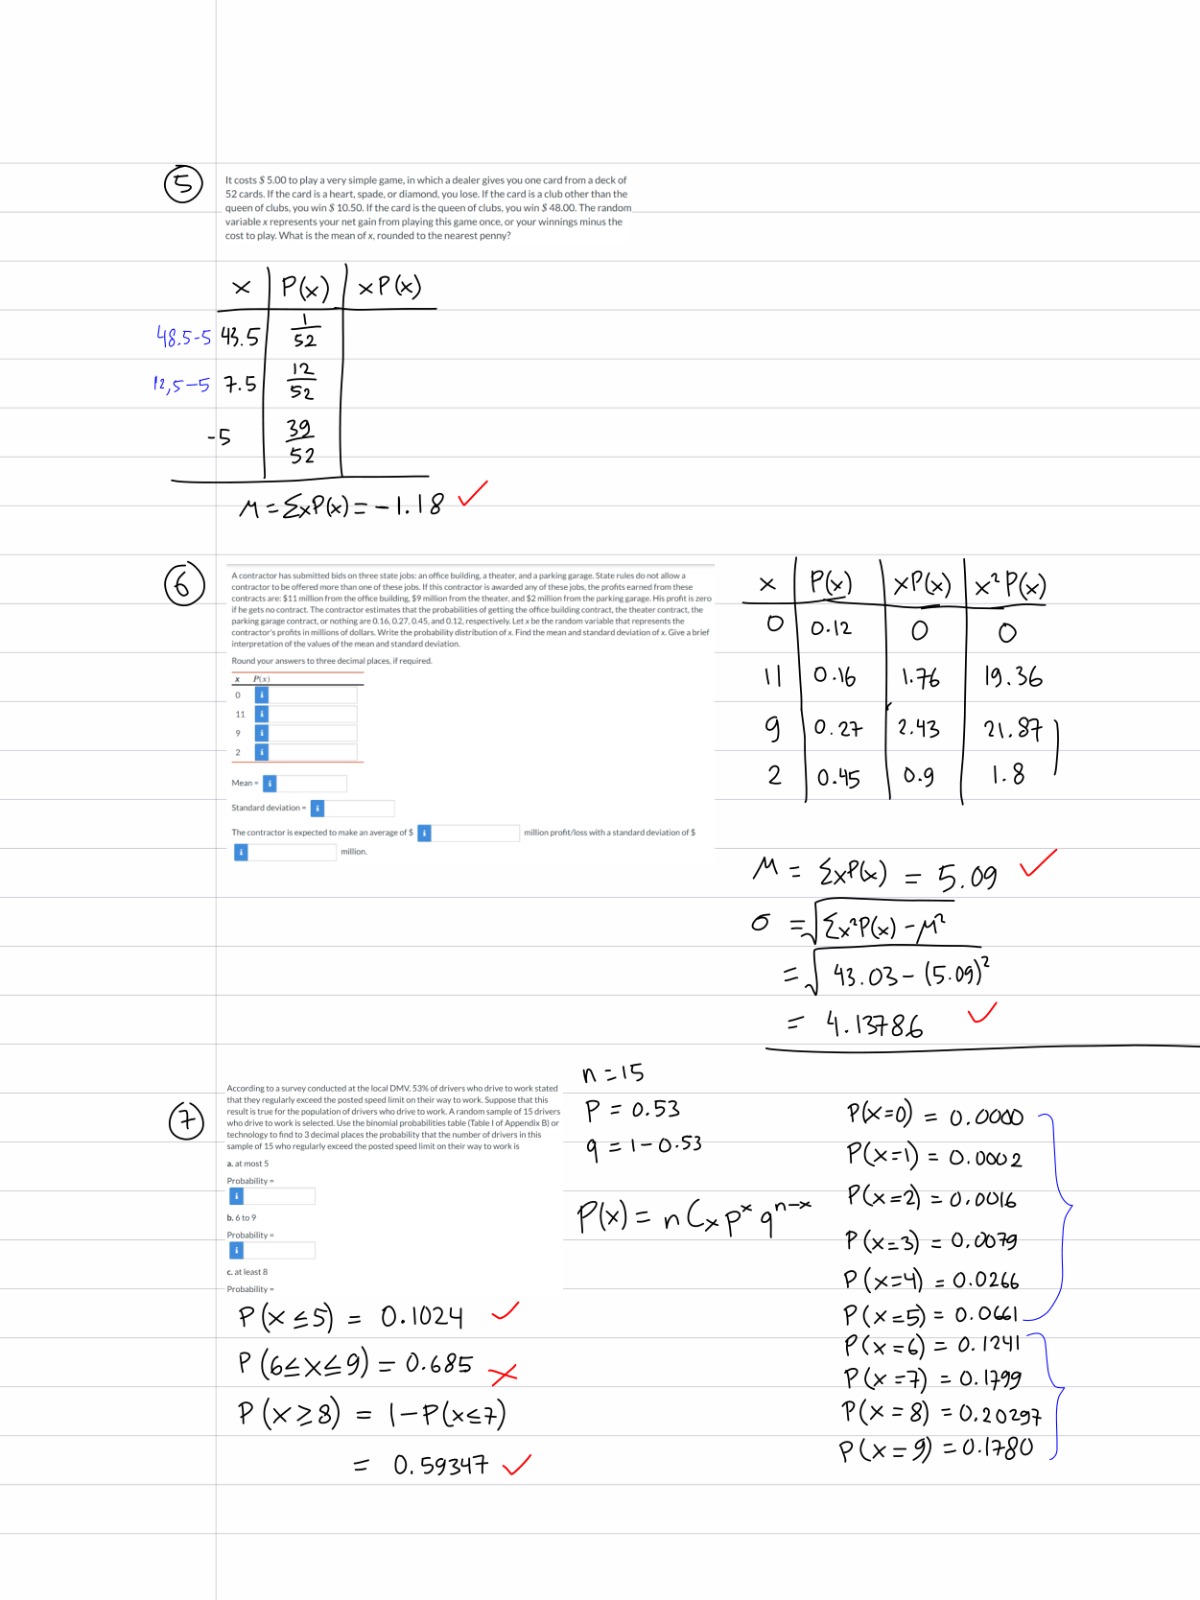 5
It costs $ 5.00 to play a very simple game, in which a dealer gives you one card from a deck of
52 cards. If the card is a heart, spade, or diamond, you lose. If the card is a club other than the
queen of clubs, you win $ 10.50. If the card is the queen of clubs, you win $ 48.00. The random
variable x represents your net gain from playing this game once, or your winnings minus the
cost to play. What is the mean of x, rounded to the nearest penny?
x P(x) xP(x)
48.5-5 43.5 1/52
12,5-5 7.5 12/52
-5 39/52
M = ΣxP(x) = -1.18 ✓
6
A contractor has submitted bids on three state jobs: an office building, a theater, and a parking garage. State rules do not allow a
contractor to be offered more than one of these jobs. If this contractor is awarded any of these jobs, the profits earned from these
contracts are: $11 million from the office building, $9 million from the theater, and $2 million from the parking garage. His profit is zero
if he gets no contract. The contractor estimates that the probabilities of getting the office building contract, the theater contract, the
parking garage contract, or nothing are 0.16, 0.27, 0.45, and 0.12, respectively. Let x be the random variable that represents the
contractor's profits in millions of dollars. Write the probability distribution of x. Find the mean and standard deviation of x. Give a brief
interpretation of the values of the mean and standard deviation.
Round your answers to three decimal places, if required.
x P(x)
0 i
11 i
9 i
2 i
Mean = i
Standard deviation = i
The contractor is expected to make an average of $ i million profit/loss with a standard deviation of $
i million.
x P(x) xP(x) x²P(x)
0 0.12 0 0
11 0.16 1.76 19.36
9 0.27 2.43 21.87
2 0.45 0.9 1.8
M = ΣxP(x) = 5.09 ✓
σ = √Σx²P(x) - M²
= √43.03 - (5.09)²
= 4.13786 ✓
7
According to a survey conducted at the local DMV, 53% of drivers who drive to work stated
that they regularly exceed the posted speed limit on their way to work. Suppose that this
result is true for the population of drivers who drive to work. A random sample of 15 drivers
who drive to work is selected. Use the binomial probabilities table (Table I of Appendix B) or
technology to find to 3 decimal places the probability that the number of drivers in this
sample of 15 who regularly exceed the posted speed limit on their way to work is
a. at most 5
Probability =
i
b. 6 to 9
Probability =
i
c. at least 8
Probability =
P(x ≤ 5) = 0.1024 ✓
P(6 ≤ x ≤ 9) = 0.685 ✗
P(x ≥ 8) = 1 - P(x ≤ 7)
= 0.59347 ✓
n = 15
P = 0.53
q = 1 - 0.53
P(x) = nCx p^x q^n-x
P(x=0) = 0.0000
P(x=1) = 0.0002
P(x=2) = 0.0016
P(x=3) = 0.0079
P(x=4) = 0.0266
P(x=5) = 0.0661
P(x=6) = 0.1241
P(x=7) = 0.1799
P(x=8) = 0.20297
P(x=9) = 0.1780